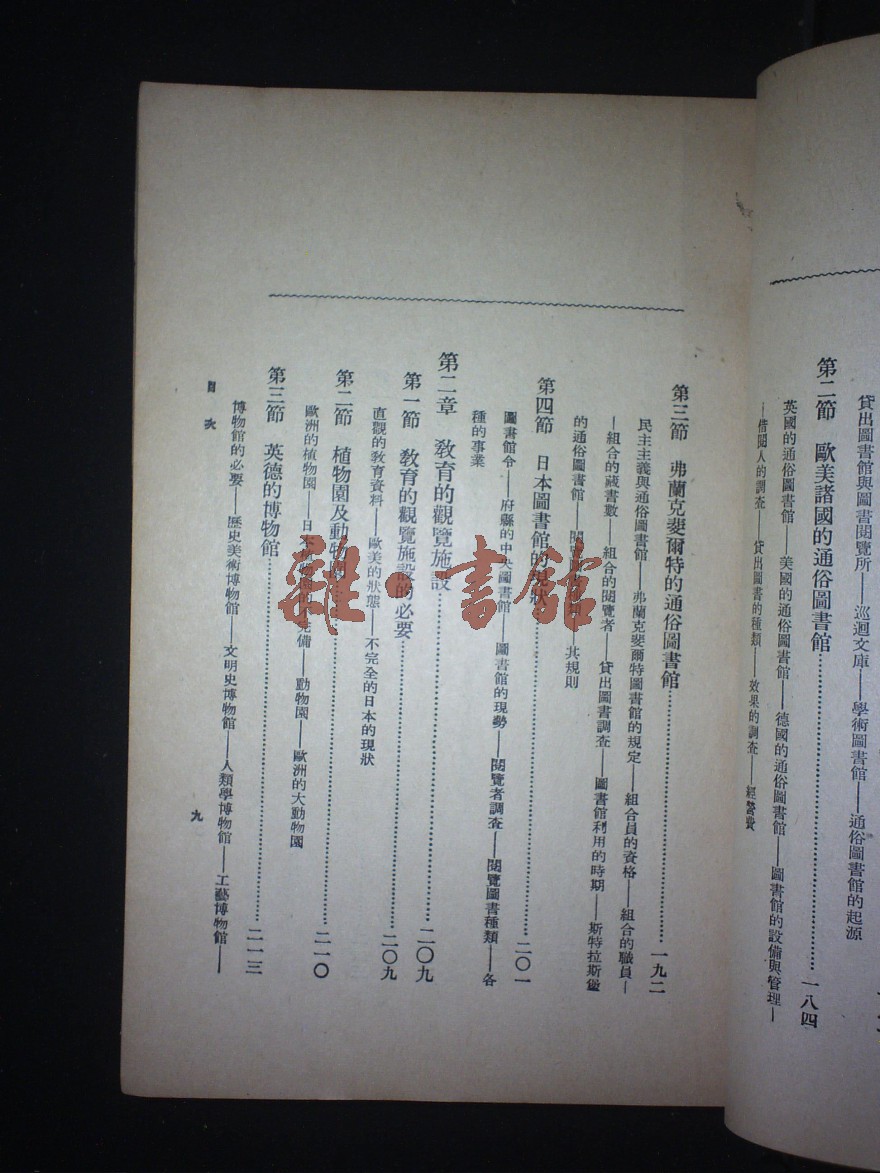 貸出圖書館與圖書閱覽所——巡迴文庫——學術圖書館——通俗圖書館的起源
第二節　歐美諸國的通俗圖書館……一八四
英國的通俗圖書館——美國的通俗圖書館——德國的通俗圖書館——圖書館的設備與管理—
—借閱人的調查——貸出圖書的種類——效果的調查——經營費
第三節　弗蘭克斐爾特的通俗圖書館……一九二
民主主義與通俗圖書館——弗蘭克斐爾特圖書館的規定——組合員的資格——組合的職員—
—組合的藏書數——組合的閱覽者——貸出圖書調查——圖書館利用的時期——斯特拉斯堡
的通俗圖書館——閱覽者的 其規則
第四節　日本圖書館的現狀……二〇一
圖書館令——府縣的中央圖書館——圖書館的現勢——閱覽者調查——閱覽圖書種類——各
種的事業
第二章　敎育的觀覽施設……二〇九
第一節　敎育的觀覽施設的必要……二〇九
直觀的敎育資料——歐美的狀態——不完全的日本的現狀
第二節　植物園及動物園……二一〇
歐洲的植物園——日本植物園的不完備——動物園——歐洲的大動物園
第三節　英德的博物館……二一三
博物館的必要——歷史美術博物館——文明史博物館——人類學博物館——工藝博物館——
目次
九
雜·書館